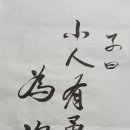 子曰
小人有勇
為